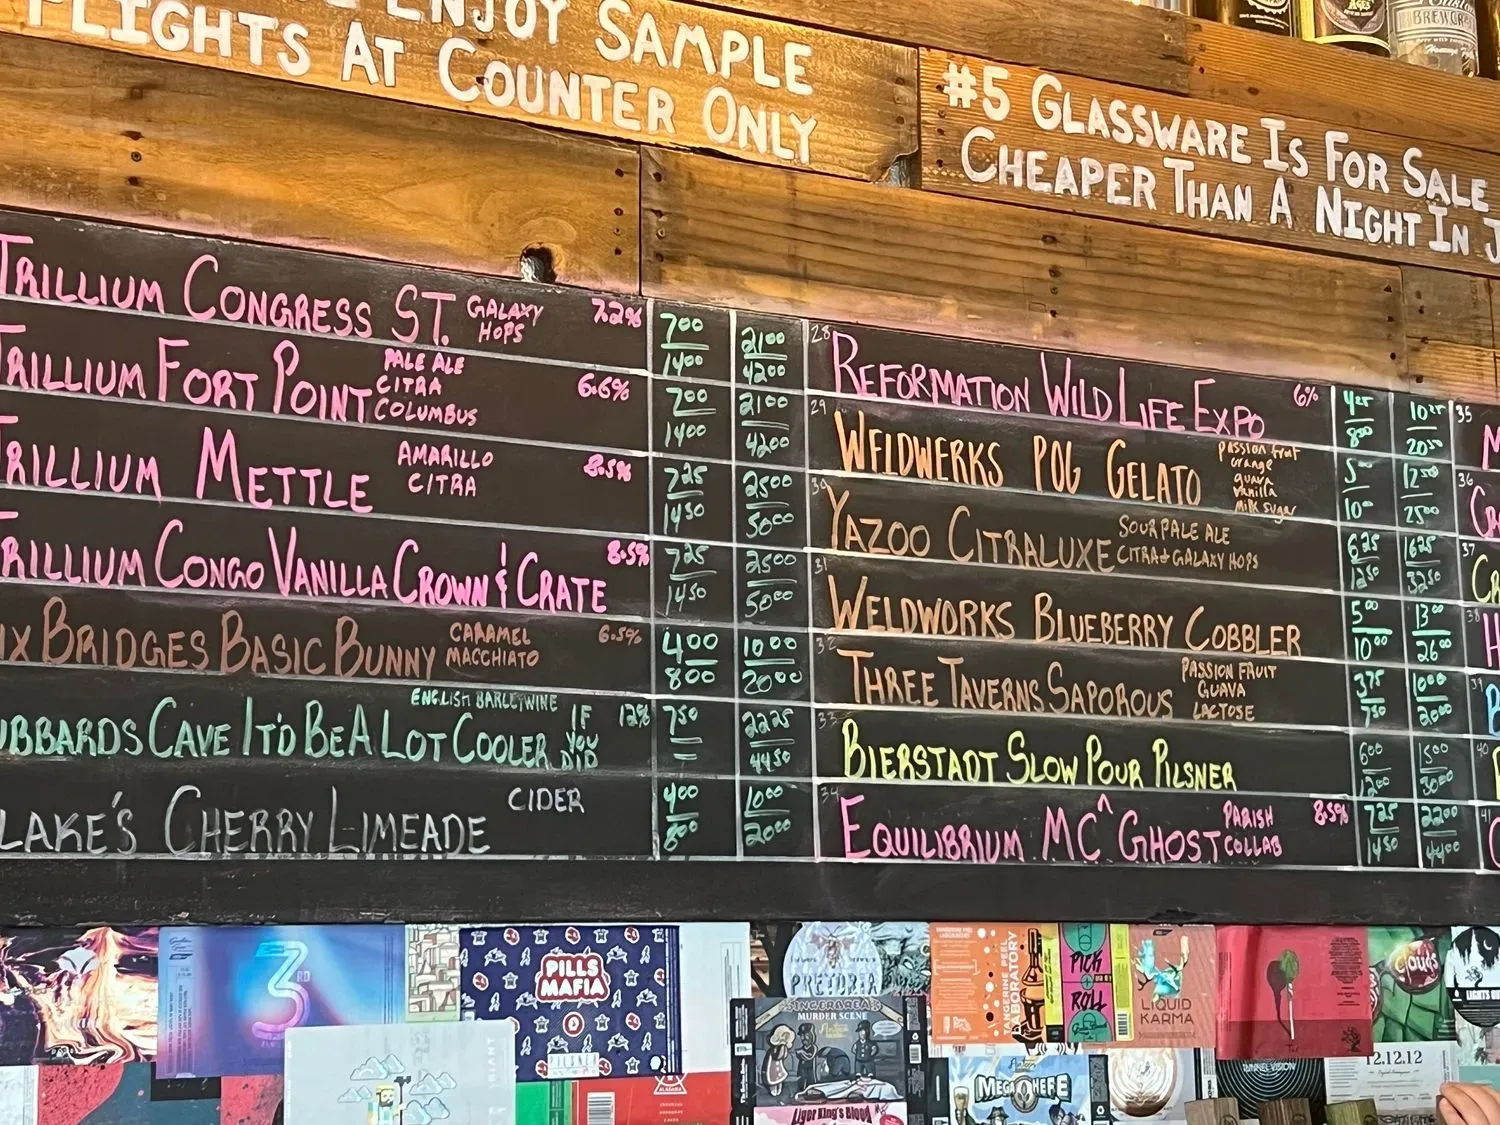 ENJOY SAMPLE
FLIGHTS AT COUNTER ONLY
#5 GLASSWARE IS FOR SALE
CHEAPER THAN A NIGHT IN J
TRILLIUM CONGRESS ST. GALAXY HOPS 7.2% 7.00 14.00 21.00 42.00
TRILLIUM FORT POINT PALE ALE CITRA COLUMBUS 6.6% 7.00 14.00 21.00 42.00
TRILLIUM METTLE AMARILLO CITRA 8.5% 7.25 14.50 25.00 50.00
TRILLIUM CONGO VANILLA CROWN & CRATE 8.5% 7.25 14.50 25.00 50.00
IX BRIDGES BASIC BUNNY CARAMEL MACCHIATO 6.5% 4.00 8.00 10.00 20.00
UBBARDS CAVE IT'D BE A LOT COOLER IF YOU DID ENGLISH BARLEYWINE 12% 7.50 – 22.25 44.50
LAKE'S CHERRY LIMEADE CIDER 4.00 8.00 10.00 20.00
28 REFORMATION WILD LIFE EXPO 6% 4.25 8.50 10.25 20.50
29 WELDWERKS POG GELATO passion fruit orange guava vanilla milk sugar 5.00 10.00 12.50 25.00
30 YAZOO CITRALUXE SOUR PALE ALE CITRA & GALAXY HOPS 6.25 12.50 16.25 32.50
31 WELDWORKS BLUEBERRY COBBLER 5.00 10.00 13.00 26.00
32 THREE TAVERNS SAPOROUS PASSION FRUIT GUAVA LACTOSE 3.75 7.50 10.00 20.00
33 BIERSTADT SLOW POUR PILSNER 6.00 12.00 15.00 30.00
34 EQUILIBRIUM MC^GHOST PARISH COLLAB 8.5% 7.25 14.50 22.00 44.00
35
36
37
38
39
40
41
3RD
PILLS MAFIA
PILSNER
PRETORIA
GINGERBREAD
MURDER SCENE
Liger King's Blood
TANGERINE PEEL
LABORATORY
PICK
ROLL
MEGA HEFE
LIQUID KARMA
TUNNEL VISION
Clouds
12.12.12
BREWERY